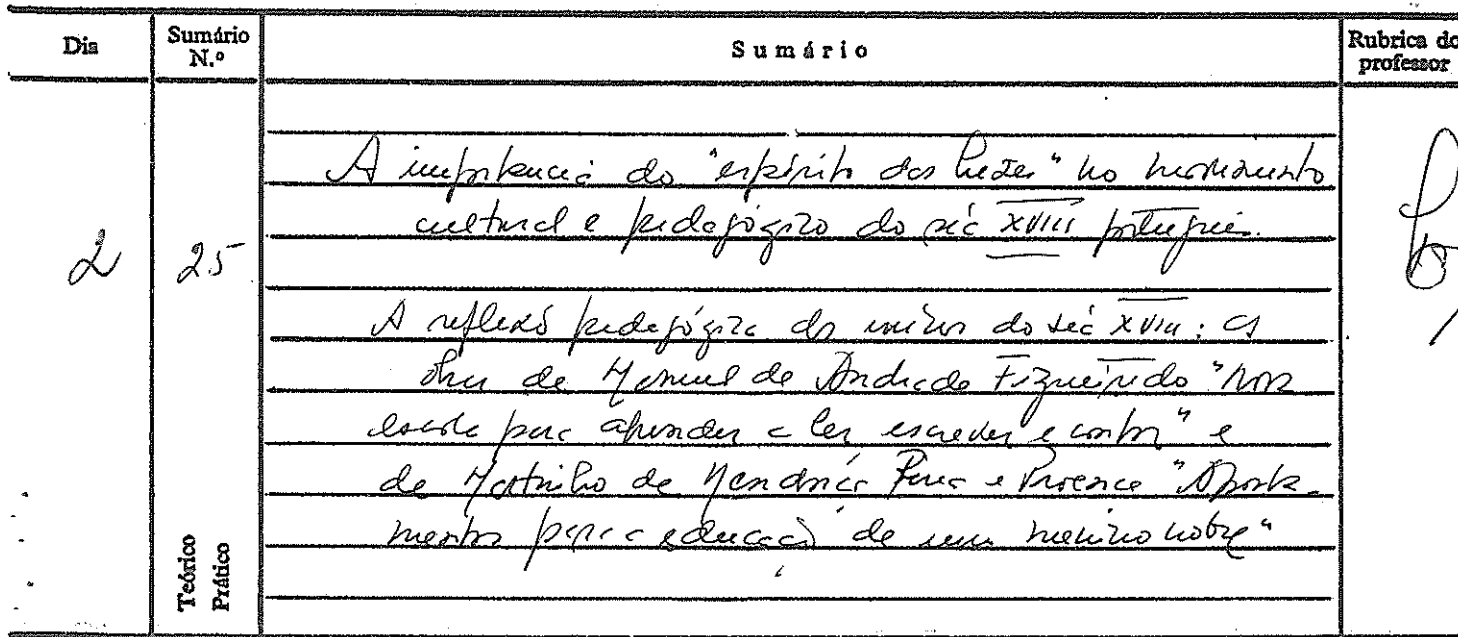 Dia
Sumário N.º
Sumário
Rubrica do professor
A importância do "espírito das luzes" no movimento
cultural e pedagógico do séc XVIII português.
2
25
A reflexão pedagógica do início do séc XVIII: as
obras de Manuel de Andrade Figueiredo "Nova
escola para aprender a ler escrever e contar" e
de Martinho de Mendonça Pina e Proença "Aponta-
mentos para a educação de um menino nobre"
Teórico
Prático